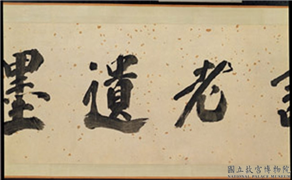 老遺墨
國立故宮博物院
NATIONAL PALACE MUSEUM